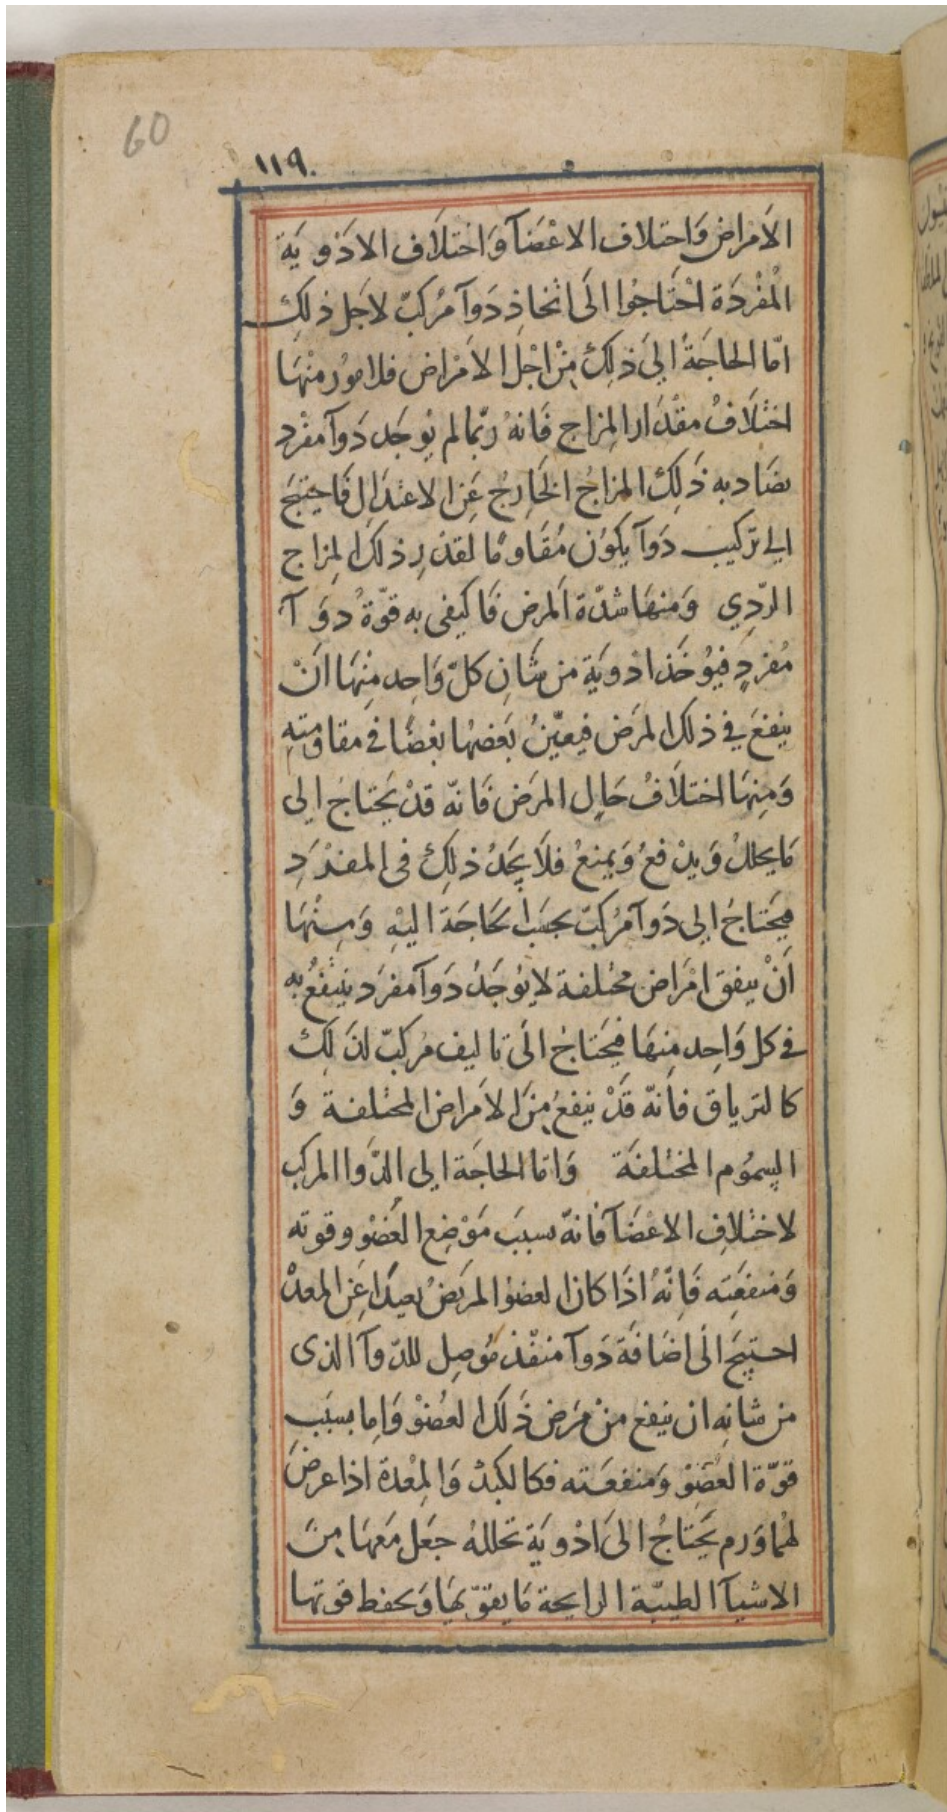 60
١١٩
الأمراض واختلاف الاعضآ واختلاف الادوية
المفردة احتاجوا الى اتخاذ دوآ مركب لاجل ذلك
امّا الحاجة الى ذلك من اجل الامراض فلامور منها
اختلاف مقدار المزاج فانه ربّما لم يوجد دوآ مفرد
يضاد به ذلك المزاج الخارج عن الاعتدال فاحتيج
الي تركيب دوآ يكون مقاومًا لقدر ذلك المزاج
الردي ومنها شدّة المرض فاكيفى به قوّة دوآ
مفردٍ فيوخذ ادوية من شان كلّ واحد منها ان
ينفع في ذلك المرض فيعيّن بعضها بعضًا في مقاومته
ومنها اختلاف حال المرض فانّه قد يحتاج الى
ما يحلل ويدفع ويمنع فلا يجد ذلك فى المفرد
فيحتاج الي دوآ مركب بحسب الحاجة اليه ومنها
ان يتفق امراض مختلفة لا يوجد دوآ مفرد ينتفع به
في كل واحد منها فيحتاج الى تاليف مركبّ لذلك
كالترياق فانّه قد ينفع من الامراض المختلفة و
السموم المختلفة وامّا الحاجة الى الدّوا المركب
لاختلاف الاعضآ فانّه بسبب موضع العضو وقوته
ومنفعته فانّه اذا كان العضو المريض بعيدًا عن المعدة
احتيج الى اضافة دوآ منفّذ موصل للدّوآ الذى
من شانه ان ينفع من مرض ذلك العضو واما بسبب
قوّة العضو ومنفعته فكالكبد والمعدة اذا عرض
لهما ورم يحتاج الى ادوية تحلله جعل معها من
الاشيآ الطيبّة الرايحة ما يقوّيها ويحفظ قوتها